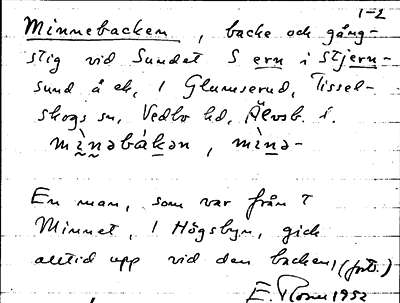 1-2
Minnebacken, backe och gång-
stig vid Sundet S ern i Stjern-
sund å ek, 1 Glumserud, Tissel-
skogs sn, Vedbo hd, Älvsb. l.
mìnəbákən, mìnə-
En man, som var från T
Minnet, 1 Högsbyn, gick
alltid upp vid den backen, (forts.)
E. Rosén 1952